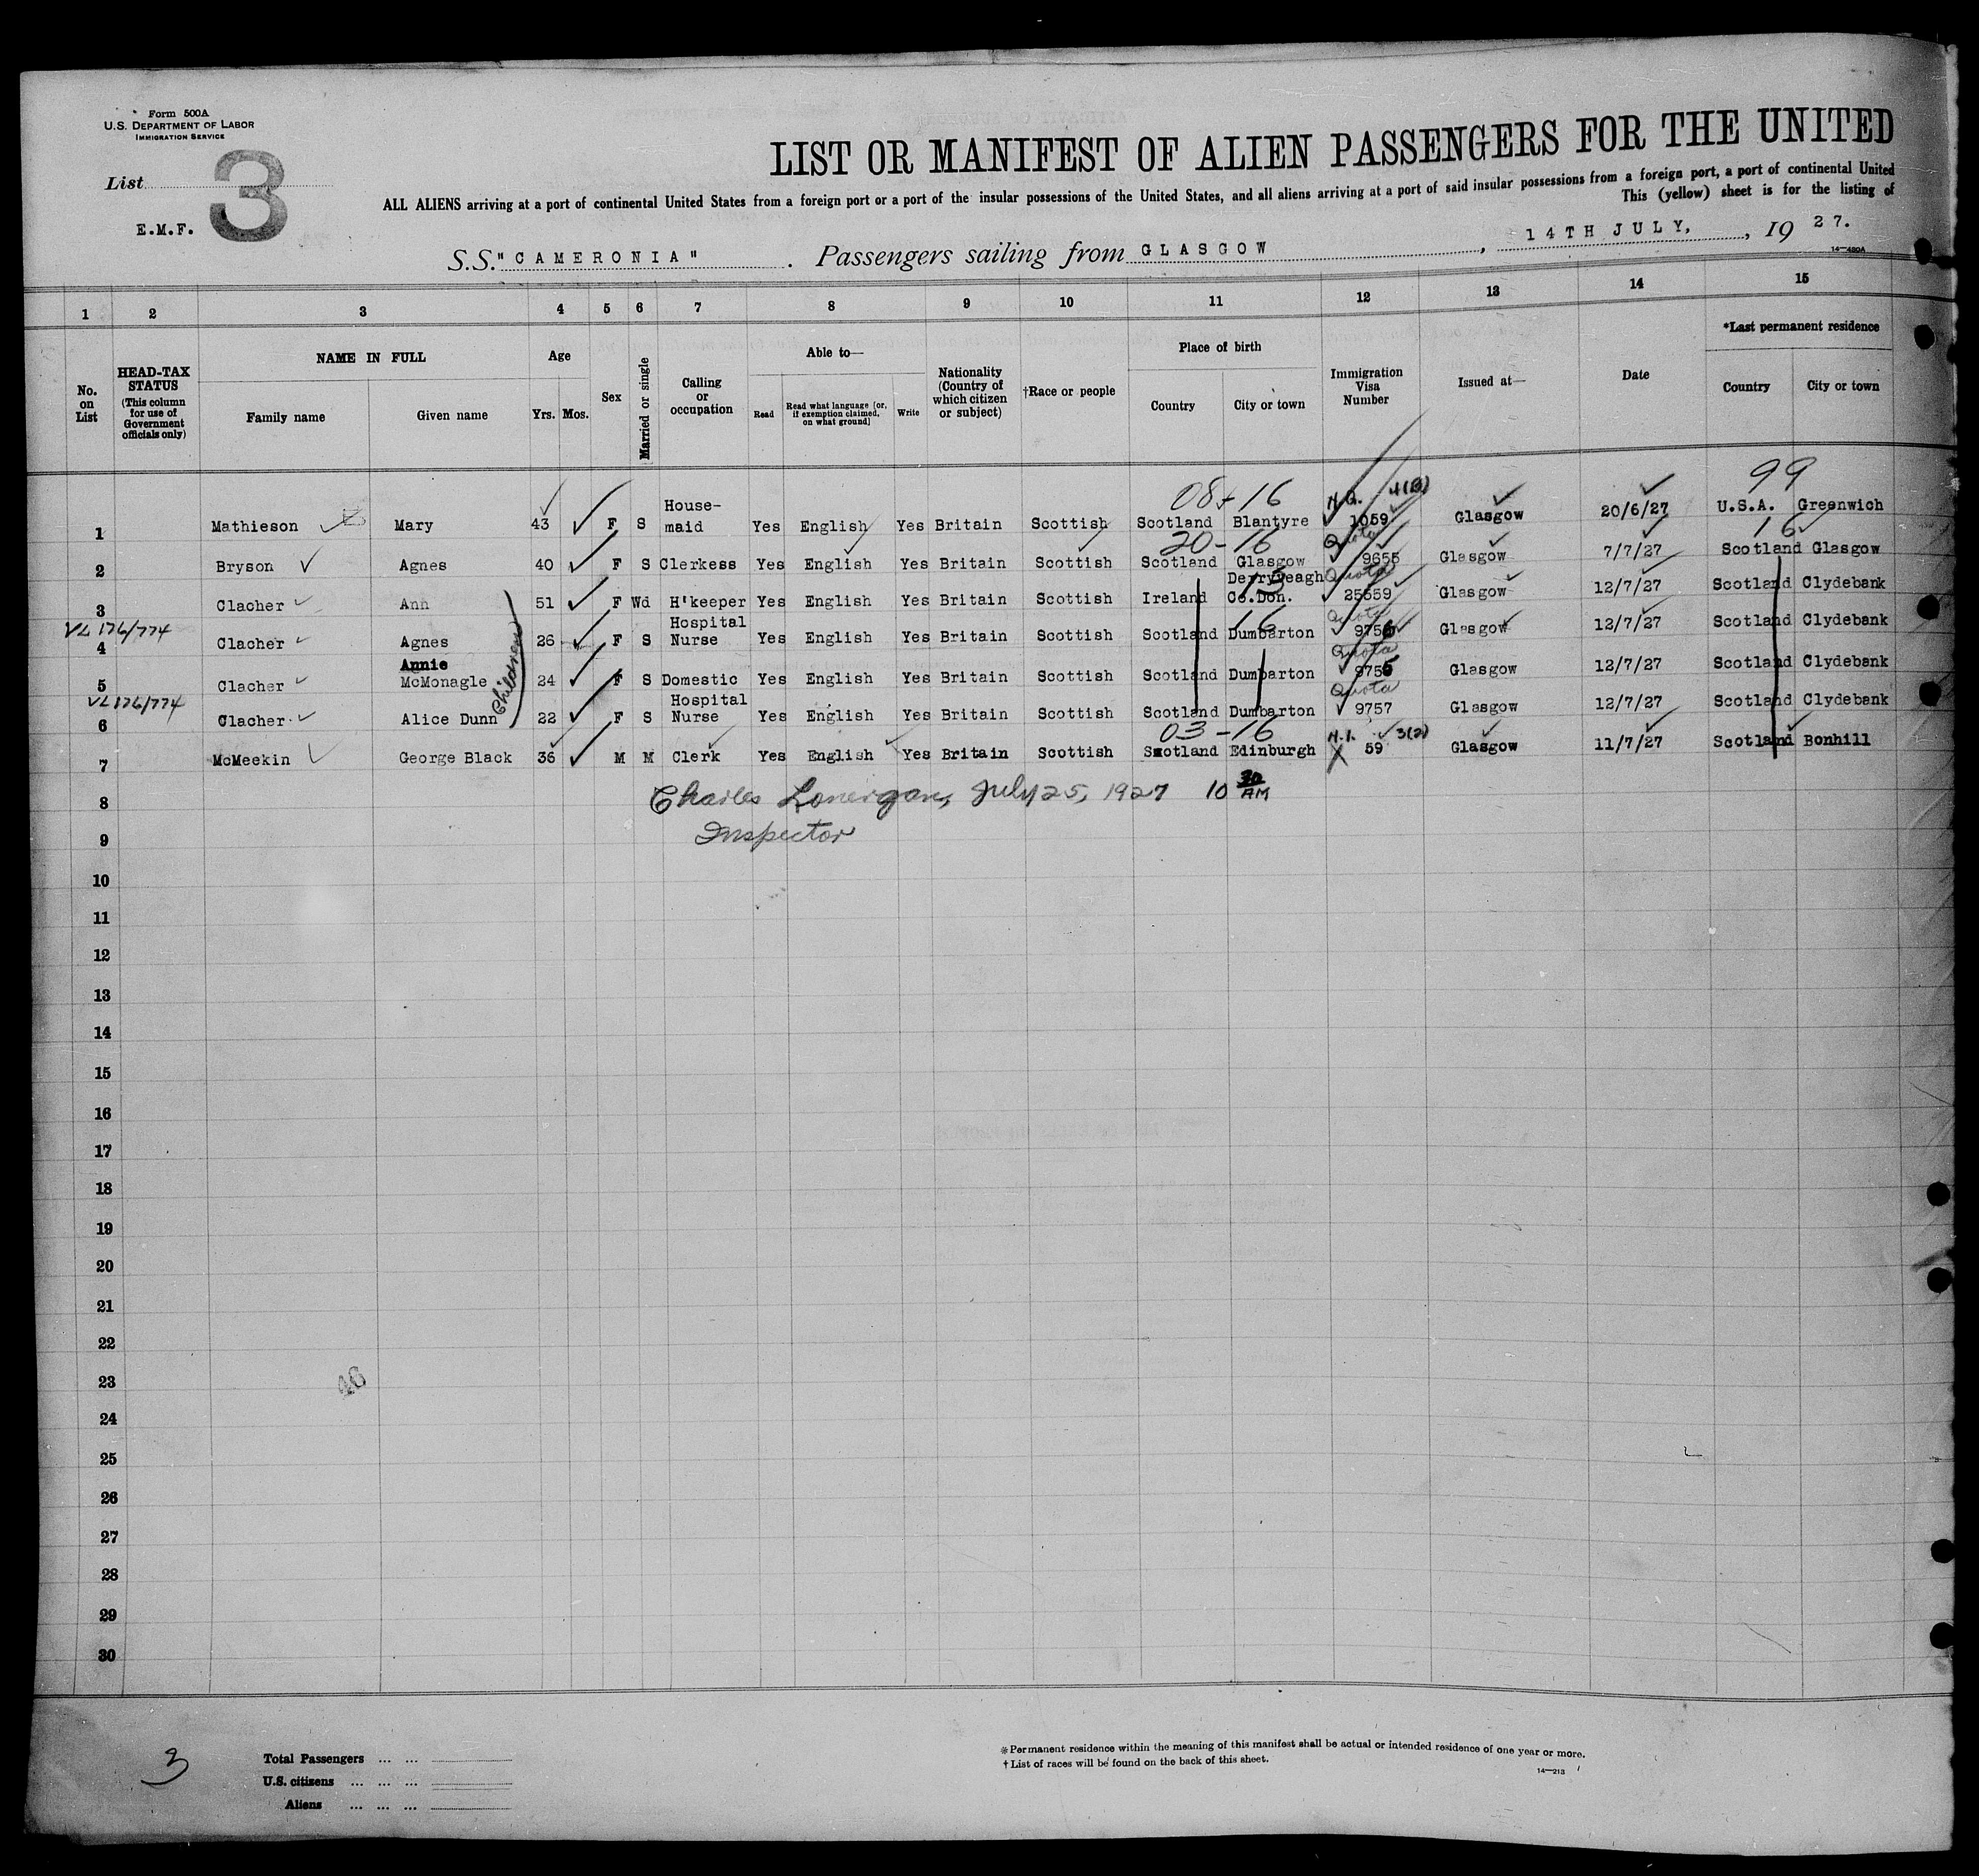 Form 500A
U.S. DEPARTMENT OF LABOR
IMMIGRATION SERVICE
List 3
E.M.F.
LIST OR MANIFEST OF ALIEN PASSENGERS FOR THE UNITED
ALL ALIENS arriving at a port of continental United States from a foreign port or a port of the insular possessions of the United States, and all aliens arriving at a port of said insular possessions from a foreign port, a port of continental United
This (yellow) sheet is for the listing of
S.S. "CAMERONIA" . Passengers sailing from GLASGOW , 14TH JULY, , 19 27.
14—480A
1 2 3 4 5 6 7 8 9 10 11 12 13 14 15
No. on List
HEAD-TAX STATUS (This column for use of Government officials only)
NAME IN FULL
Family name Given name
Age
Yrs. Mos.
Sex
Married or single
Calling or occupation
Able to—
Read Read what language [or, if exemption claimed, on what ground] Write
Nationality (Country of which citizen or subject)
†Race or people
Place of birth
Country City or town
Immigration Visa Number
Issued at—
Date
*Last permanent residence
Country City or town
08-16 4(B) 99
1 Mathieson Mary 43 F S House-maid Yes English Yes Britain Scottish Scotland Blantyre 1059 Glasgow 20/6/27 U.S.A. Greenwich
20-16 Quota 16
2 Bryson Agnes 40 F S Clerkess Yes English Yes Britain Scottish Scotland Glasgow 9655 Glasgow 7/7/27 Scotland Glasgow
13 Quota
3 Clacher Ann 51 F Wd H'keeper Yes English Yes Britain Scottish Ireland Derryveagh Co.Don. 25559 Glasgow 12/7/27 Scotland Clydebank
VL 176/774 16 Quota
4 Clacher Agnes 26 F S Hospital Nurse Yes English Yes Britain Scottish Scotland Dumbarton 9756 Glasgow 12/7/27 Scotland Clydebank
Children
Quota
5 Clacher Annie McMonagle 24 F S Domestic Yes English Yes Britain Scottish Scotland Dumbarton 9755 Glasgow 12/7/27 Scotland Clydebank
VL 176/774 Quota
6 Clacher Alice Dunn 22 F S Hospital Nurse Yes English Yes Britain Scottish Scotland Dumbarton 9757 Glasgow 12/7/27 Scotland Clydebank
03-16 3(2)
7 McMeekin George Black 36 M M Clerk Yes English Yes Britain Scottish Scotland Edinburgh 59 Glasgow 11/7/27 Scotland Bonhill
8 Charles Lonergan, July 25, 1927 10 30 AM
9 Inspector
10
11
12
13
14
15
16
17
18
19
20
21
22
23
24
25
26
27
28
29
30
3
Total Passengers ... ...
U.S. citizens ... ... ...
Aliens ... ... ...
*Permanent residence within the meaning of this manifest shall be actual or intended residence of one year or more.
†List of races will be found on the back of this sheet.
14—213